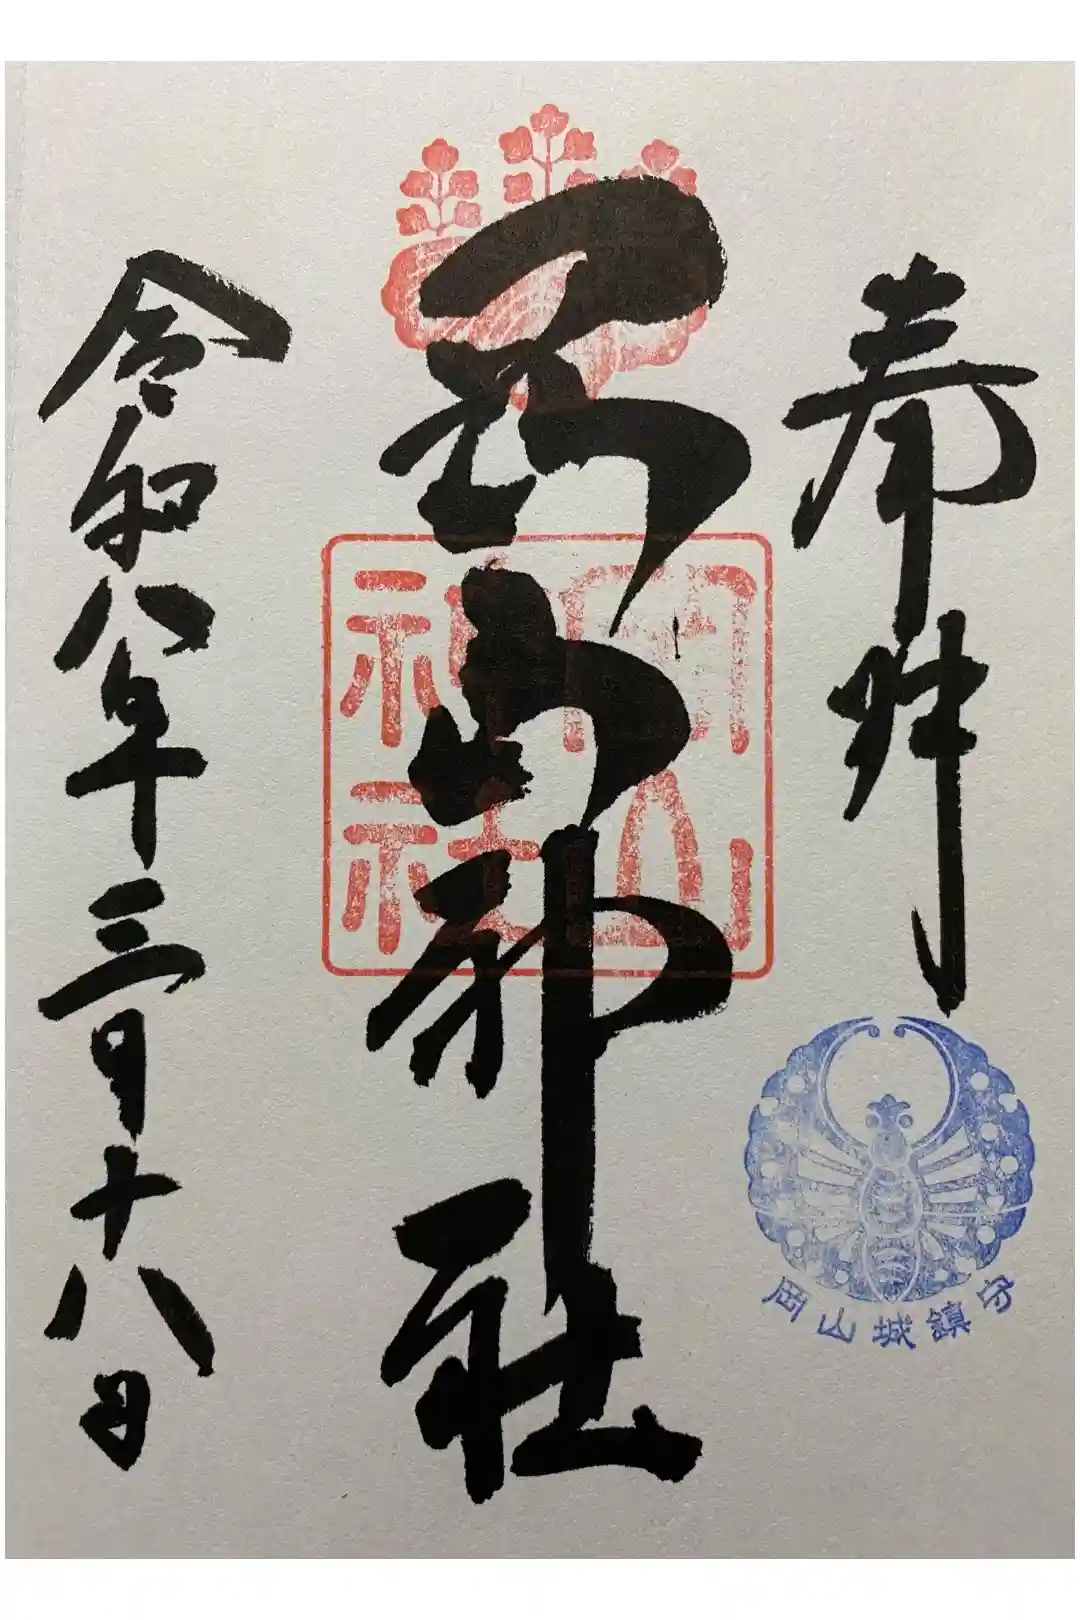 奉拝
岡山城鎮守
岡山神社
岡山神社
令和八年三月十八日